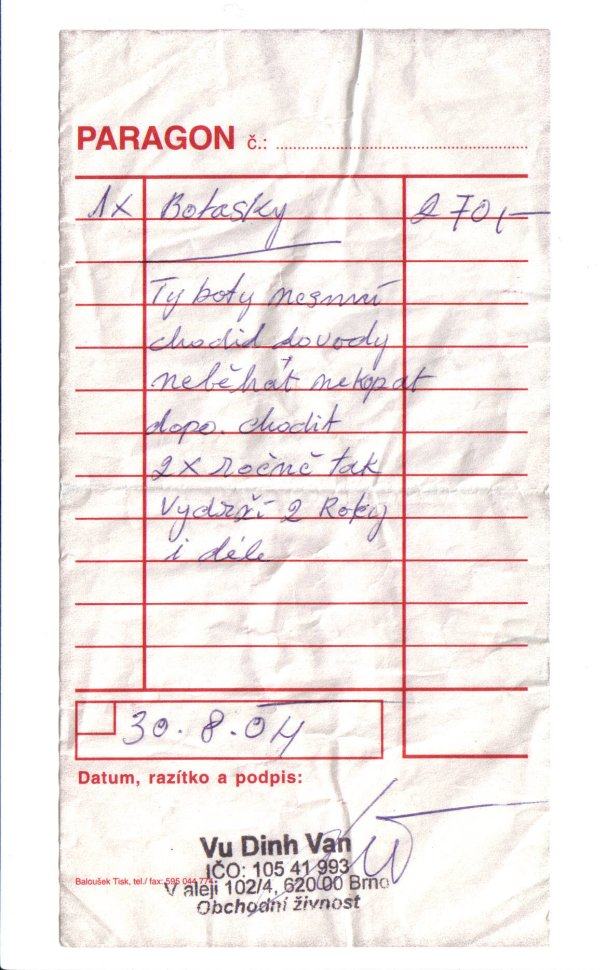 PARAGON č.:
1x Botasky 270,-
Ty boty nesmní
chodid dovody
neběhat nekopat
dopo. chodit
2x ročně tak
Vydrží 2 Roky
i déle
30.8.04
Datum, razítko a podpis:
Vu Dinh Van
IČO: 105 41 993
Baloušek Tisk, tel./ fax: 595 044 774
V aleji 102/4, 620 00 Brno
Obchodní živnost